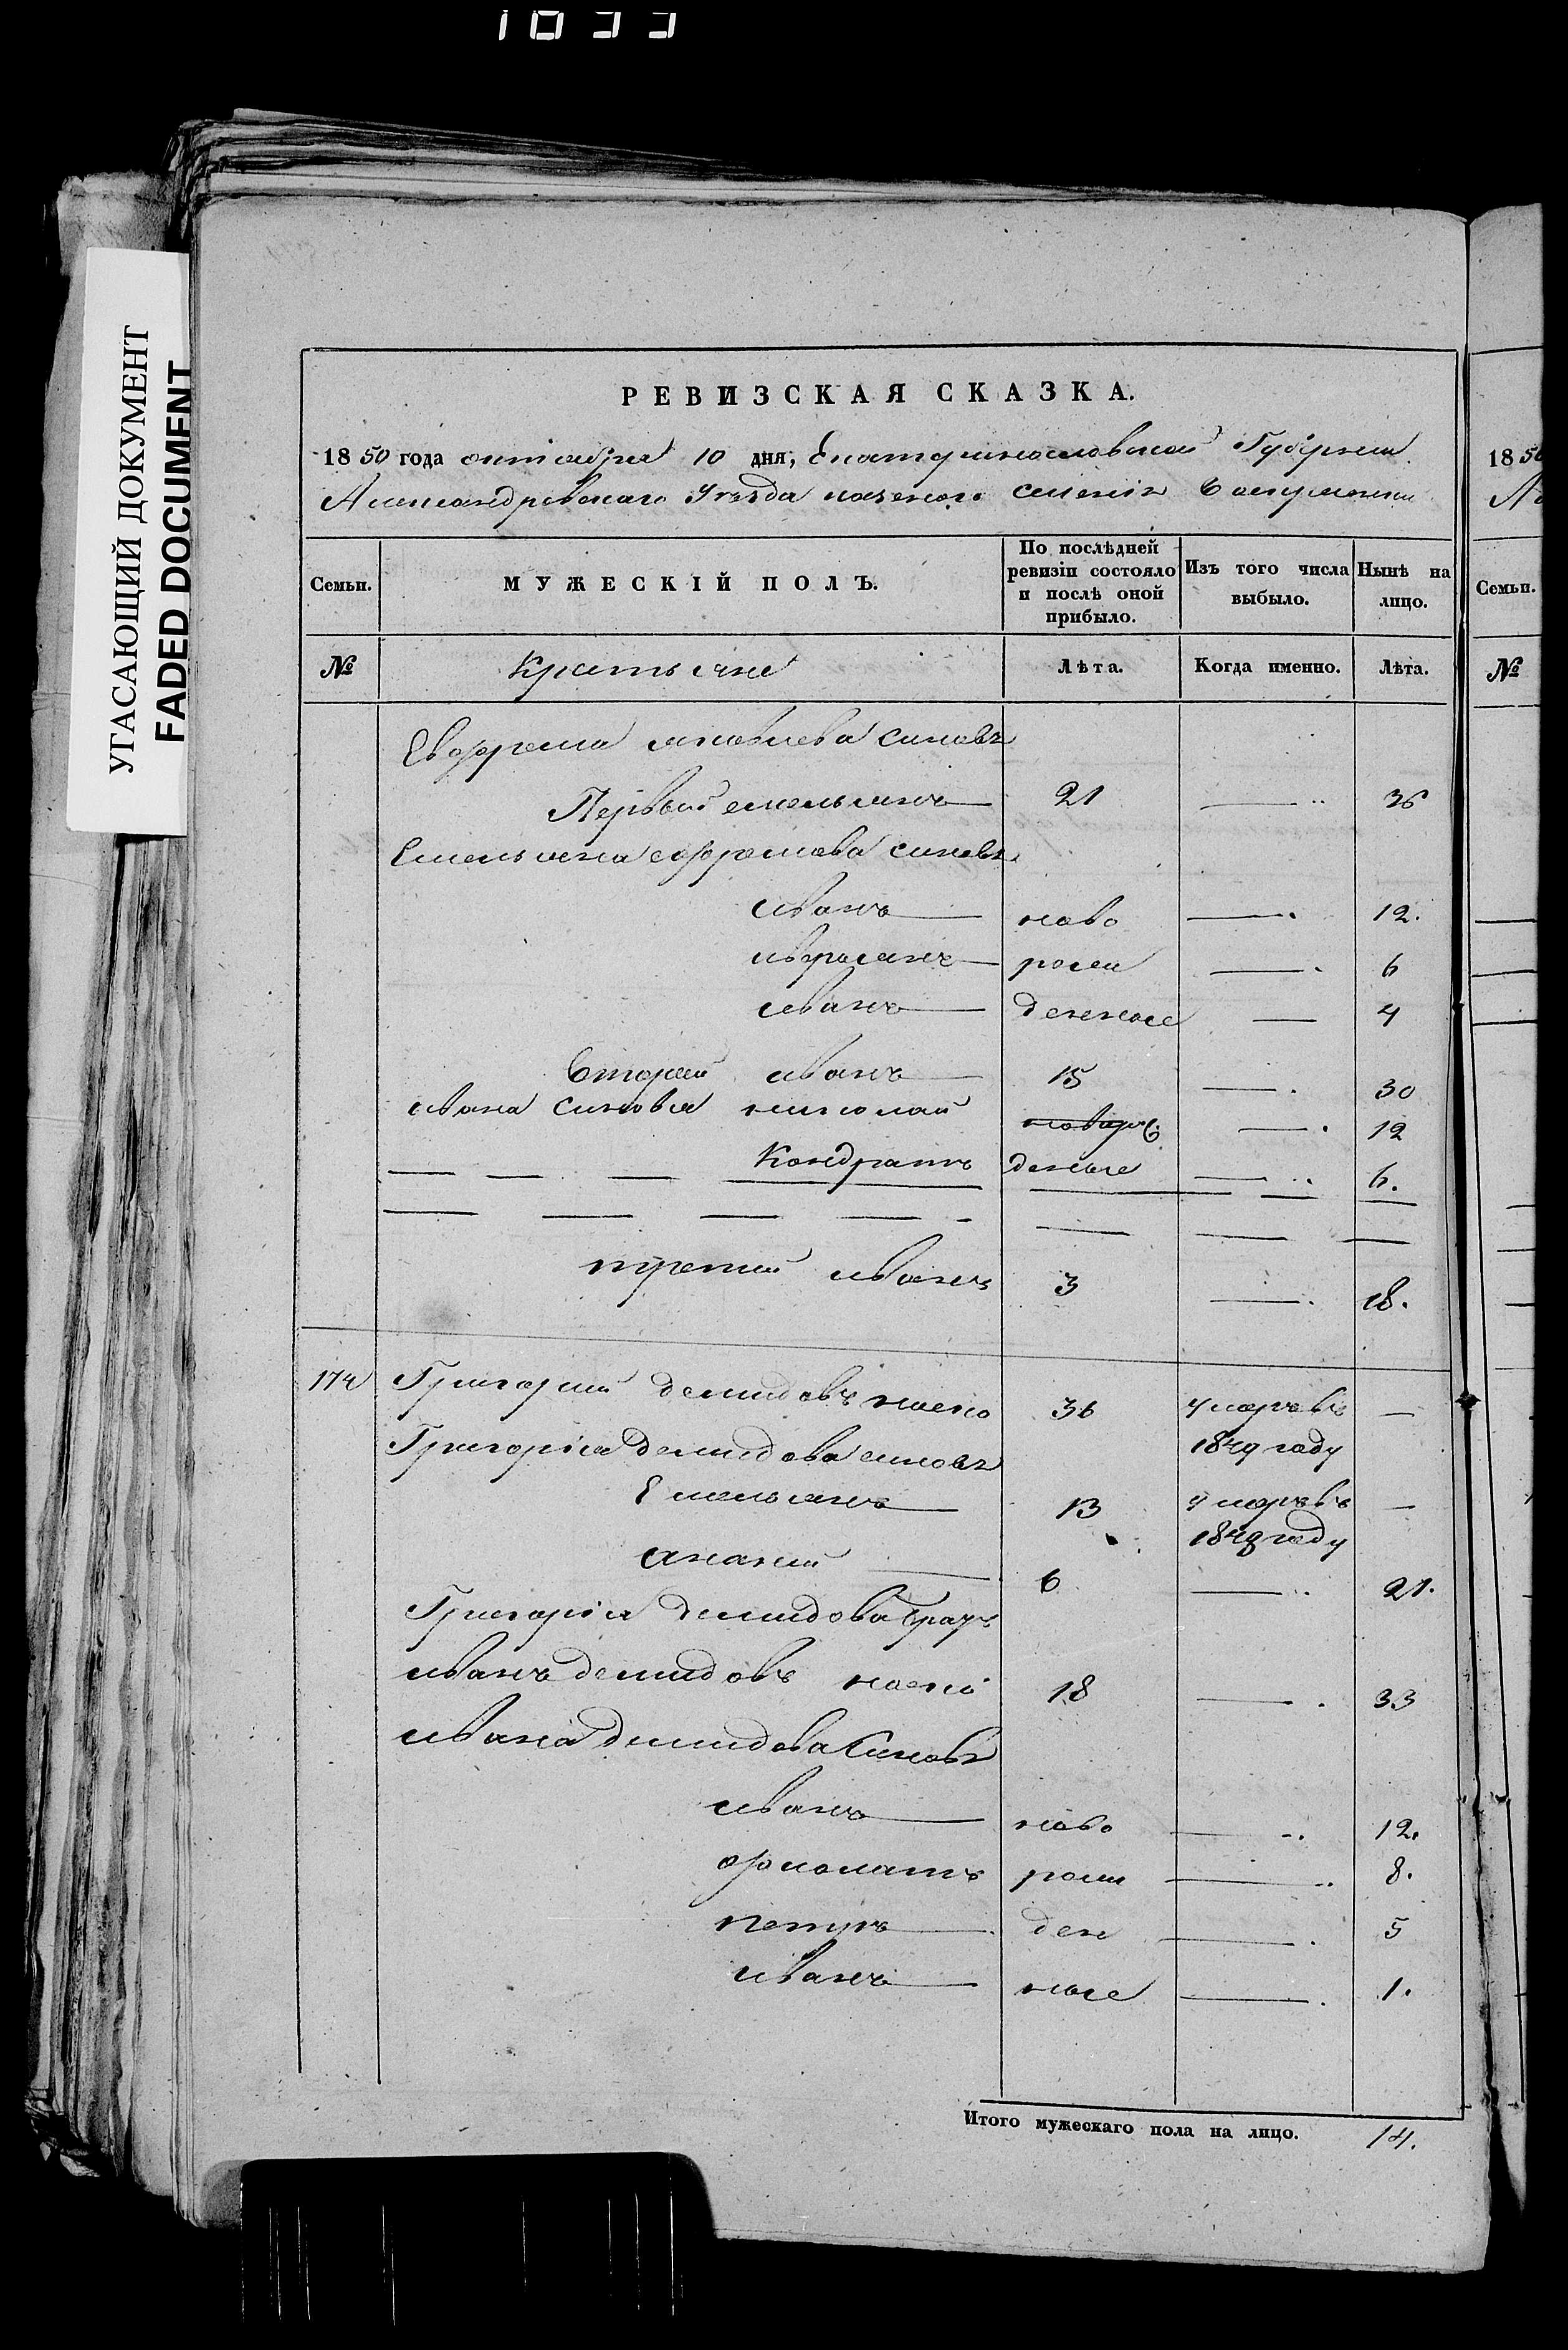 1033
УГАСАЮЩИЙ ДОКУМЕНТ
FADED DOCUMENT
РЕВИЗСКАЯ СКАЗКА.
1850 года октября 10 дня, Екатеринославской Губернии
Александровскаго Уезда казеннаго селения
Семьи. МУЖЕСКІЙ ПОЛЪ. По послѣдней ревизіи состояло и послѣ оной прибыло. Изъ того числа выбыло. Нынѣ на лицо.
№ Крестьяне Лѣта. Когда именно. Лѣта.
Евфрема яковлева синовя
Первый емельянъ 21 — 36
Емельяна ефремова синовя
иванъ ново — 12.
аврамъ рожд — 6
иванъ денные — 4
Вторый иванъ 15 — 30
ивана синовья николай новор — 12
Кондратъ деные — 6.
третий иванъ 3 — 18.
174 Григорий демидовъ 36 умеръ въ —
Григорія Демидова синовя 1849 году
Емельянъ 13 умеръ въ —
1848 году
ананий 6 — 21.
Григорія демидова братъ
иванъ демидовъ 18 — 33
ивана демидова Синовя
иванъ ново — 12.
рож — 8.
петръ ден — 5
иванъ ные — 1.
Итого мужескаго пола на лицо. 14.
1850
Семьи.
№